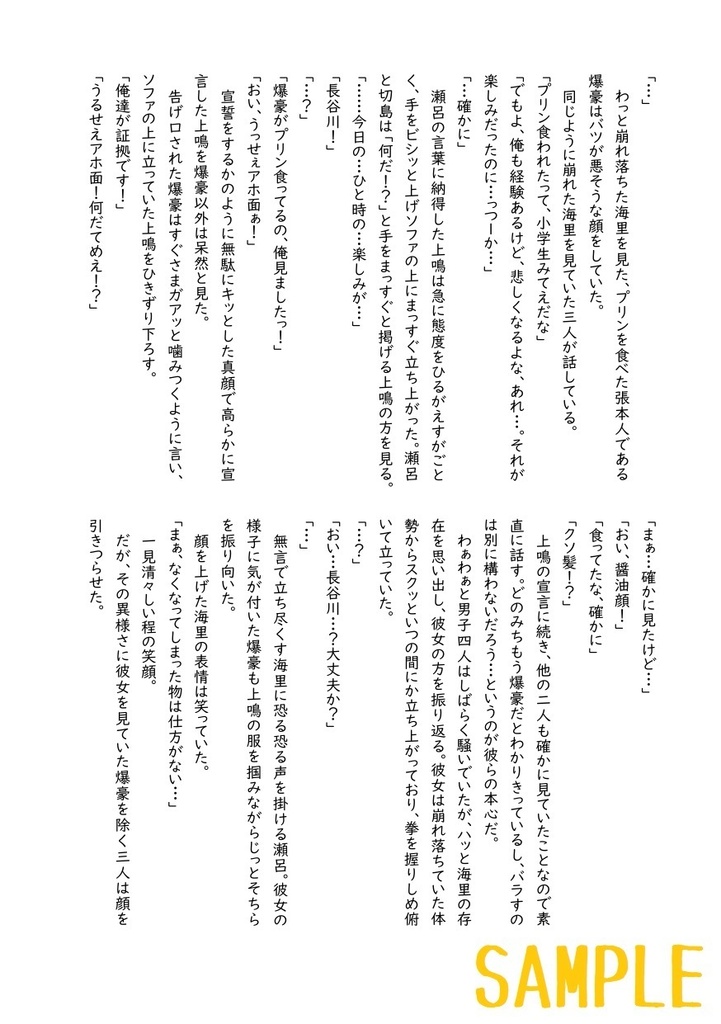 「…」
　わっと崩れ落ちた海里を見た、プリンを食べた張本人である
爆豪はバツが悪そうな顔をしていた。
　同じように崩れた海里を見ていた三人が話している。
「プリン食われたって、小学生みてえだな」
「でもよ、俺も経験あるけど、悲しくなるよな、あれ…。それが
楽しみだったのに…っつーか…」
「…確かに」
　瀬呂の言葉に納得した上鳴は急に態度をひるがえすがごと
く、手をビシッと上げソファの上にまっすぐ立ち上がった。瀬呂
と切島は「何だ！？」と手をまっすぐと掲げる上鳴の方を見る。
「……今日の…ひと時の…楽しみが…」
「長谷川！」
「…？」
「爆豪がプリン食ってるの、俺見ましたっ！」
「おい、うっせぇアホ面ぁ！」
　宣誓をするかのように無駄にキッとした真顔で高らかに宣
言した上鳴を爆豪以外は呆然と見た。
　告げ口された爆豪はすぐさまガアッと噛みつくように言い、
ソファの上に立っていた上鳴をひきずり下ろす。
「俺達が証拠です！」
「うるせえアホ面！何だてめえ！？」
「まぁ…確かに見たけど…」
「おい、醤油顔！」
「食ってたな、確かに」
「クソ髪！？」
　上鳴の宣言に続き、他の二人も確かに見ていたことなので素
直に話す。どのみちもう爆豪だとわかりきっているし、バラすの
は別に構わないだろう…というのが彼らの本心だ。
　わぁわぁと男子四人はしばらく騒いでいたが、ハッと海里の存
在を思い出し、彼女の方を振り返る。彼女は崩れ落ちていた体
勢からスクッといつの間にか立ち上がっており、拳を握りしめ俯
いて立っていた。
「…？」
「おい…長谷川…？大丈夫か？」
「…」
　無言で立ち尽くす海里に恐る恐る声を掛ける瀬呂。彼女の
様子に気が付いた爆豪も上鳴の服を掴みながらじっとそちら
を振り向いた。
　顔を上げた海里の表情は笑っていた。
「まぁ、なくなってしまった物は仕方がない…」
　一見清々しい程の笑顔。
　だが、その異様さに彼女を見ていた爆豪を除く三人は顔を
引きつらせた。
SAMPLE